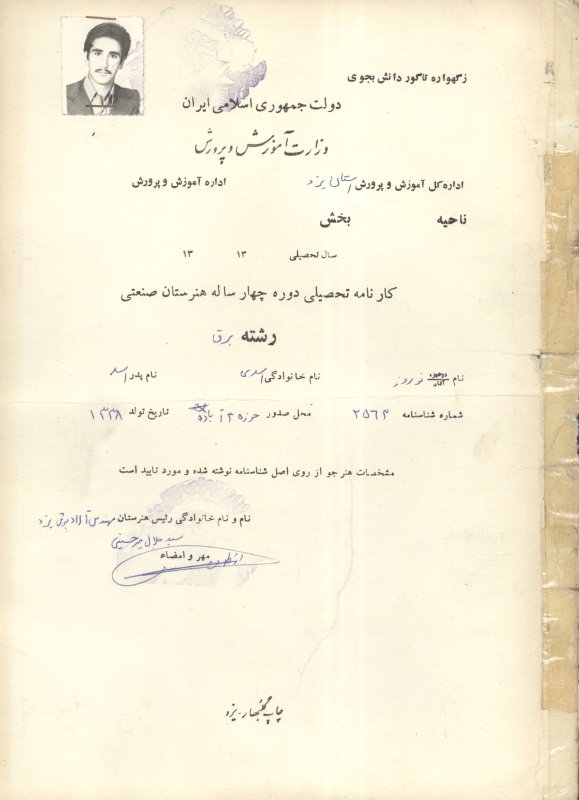 زگهواره تاگور دانش بجوی
دولت جمهوری اسلامی ایران
وزارت آموزش و پرورش
اداره کل آموزش و پرورش استان یزد اداره آموزش و پرورش
ناحیه بخش
سال تحصیلی ۱۳ ۱۳
کارنامه تحصیلی دوره چهار ساله هنرستان صنعتی
رشته برق
نام دوشیزه آقای نوروز نام خانوادگی اسدی نام پدر اسد
شماره شناسنامه ۲۵۶۳ محل صدور حوزه ۳ آباده تاریخ تولد ۱۳۳۸
مشخصات هنرجو از روی اصل شناسنامه نوشته شده و مورد تایید است
نام و نام خانوادگی رئیس هنرستان مهندس یزد
سید جلال میرحسینی
مهر و امضاء
چاپ گلبهار - یزد